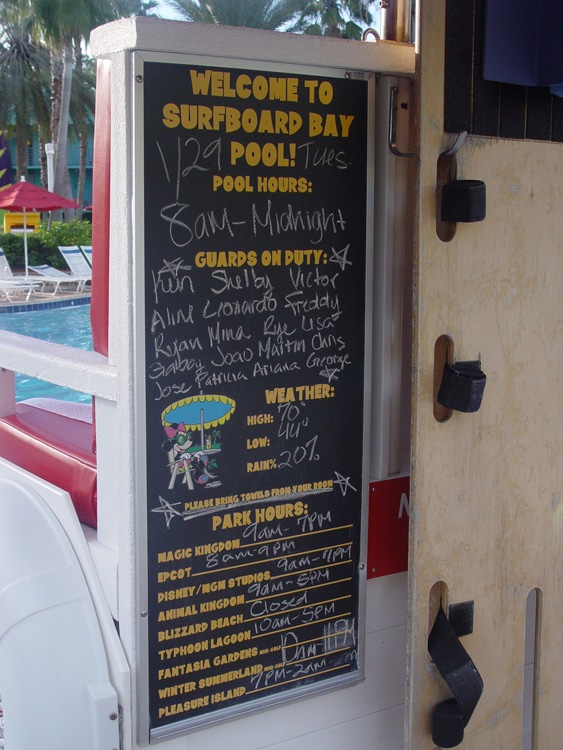 WELCOME TO
SURFBOARD BAY
1/29 POOL! Tues.
POOL HOURS:
8am-Midnight
GUARDS ON DUTY:
Shelby Victor
Aline Leonardo Freddy
Ryan Mina Rye Lisa
João Martin Chris
Jose Patricia Ariana George
WEATHER:
HIGH: 70°
LOW: 44°
RAIN% 20%
PLEASE BRING TOWELS FROM YOUR ROOM
PARK HOURS:
MAGIC KINGDOM 9am-7pm
EPCOT 8am-9pm
DISNEY/MGM STUDIOS 9am-7pm
ANIMAL KINGDOM 9am-5pm
BLIZZARD BEACH Closed
TYPHOON LAGOON 10am-5pm
FANTASIA GARDENS MINI-GOLF
WINTER SUMMERLAND MINI-GOLF 10am-11PM
PLEASURE ISLAND 7PM-2am